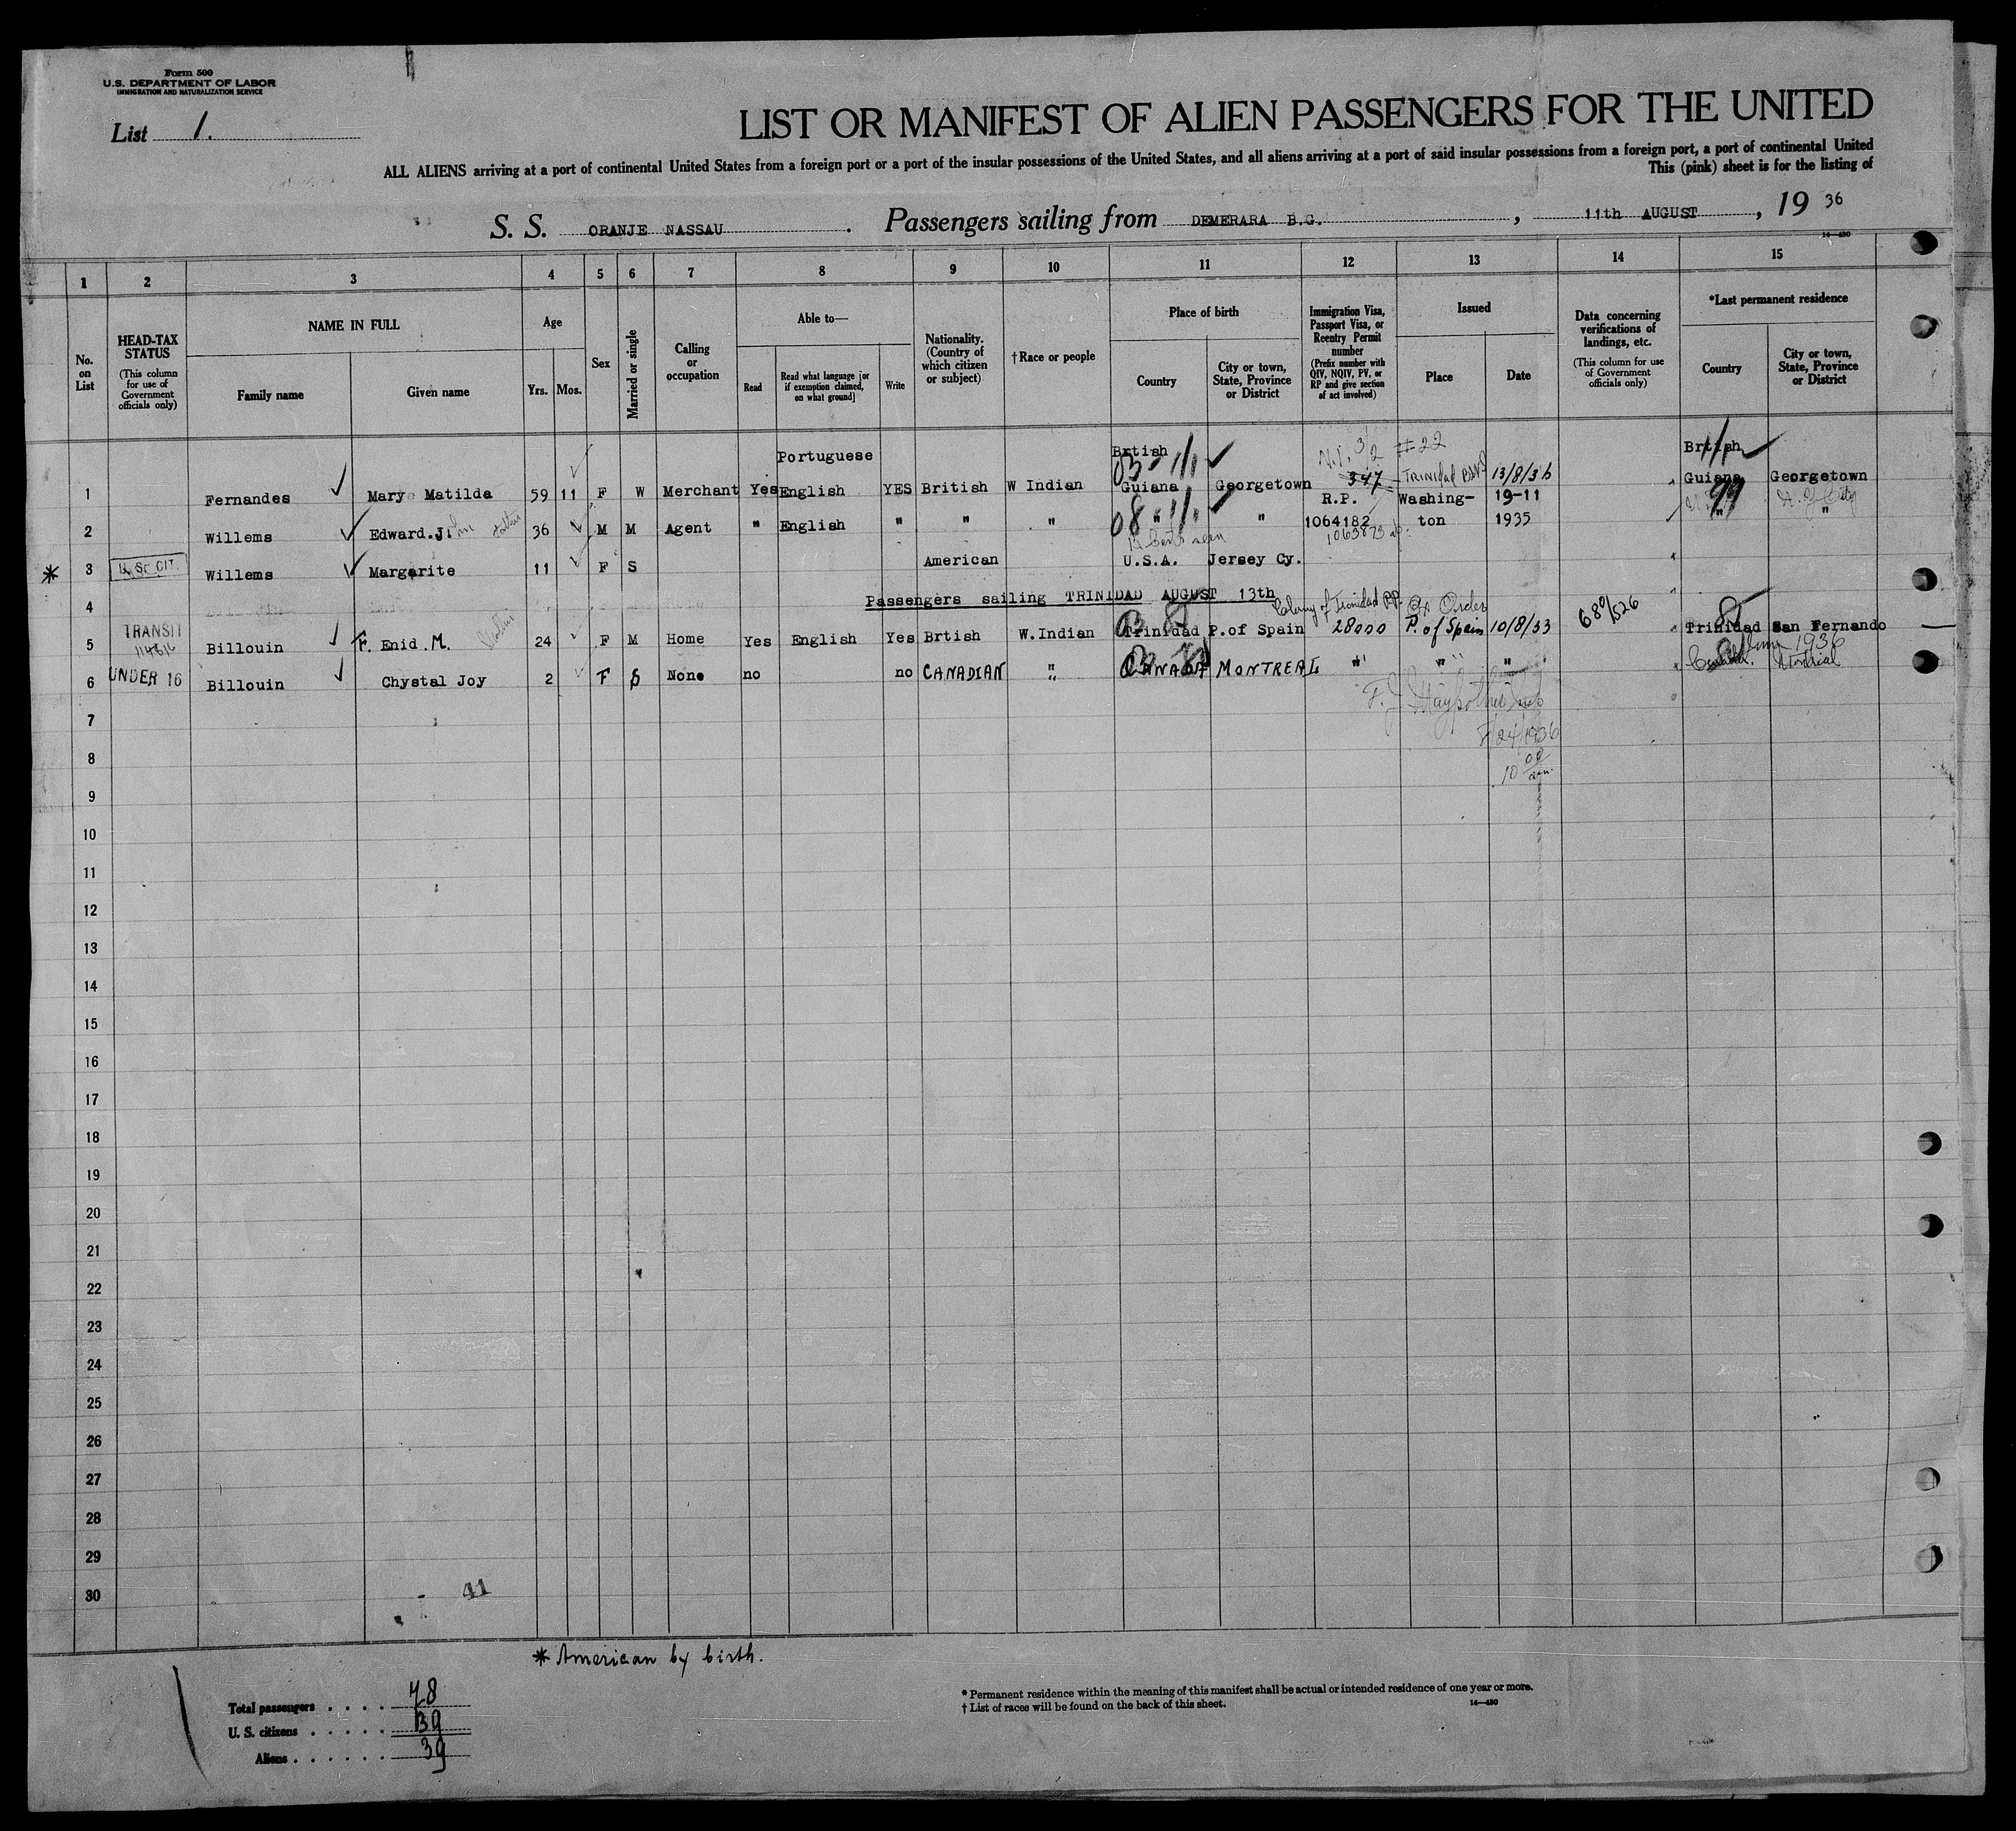 Form 500
U.S. DEPARTMENT OF LABOR
IMMIGRATION AND NATURALIZATION SERVICE
List 1.
LIST OR MANIFEST OF ALIEN PASSENGERS FOR THE UNITED
ALL ALIENS arriving at a port of continental United States from a foreign port or a port of the insular possessions of the United States, and all aliens arriving at a port of said insular possessions from a foreign port, a port of continental United
This (pink) sheet is for the listing of
S. S. ORANJE NASSAU . Passengers sailing from DEMERARA B.G. , 11th AUGUST , 19 36
14—480
1 2 3 4 5 6 7 8 9 10 11 12 13 14 15
No. on List
HEAD-TAX STATUS
(This column for use of Government officials only)
NAME IN FULL
Family name
Given name
Age
Yrs.
Mos.
Sex
Married or single
Calling or occupation
Able to—
Read
Read what language [or if exemption claimed, on what ground]
Write
Nationality. (Country of which citizen or subject)
†Race or people
Place of birth
Country
City or town, State, Province or District
Immigration Visa, Passport Visa, or Reentry Permit number
(Prefix number with QIV, NQIV, PV, or RP and give section of act involved)
Issued
Place
Date
Data concerning verifications of landings, etc.
(This column for use of Government officials only)
*Last permanent residence
Country
City or town, State, Province or District
Portuguese Brtish 3/2 #22 Brtish
1 Fernandes Mary Matilda 59 11 F W Merchant Yes English YES British W Indian Guiana Georgetown 347 Trinidad 13/8/36 Guiana Georgetown
R.P. Washing- 19-11
2 Willems Edward.J. 36 M M Agent " English " " " 08 " " 1064182 ton 1935 " "
3 U.S. CIT. Willems Margarite 11 F S American U.S.A. Jersey Cy.
4 Passengers sailing TRINIDAD AUGUST 13th
Colony of Trinidad PP.
TRANSIT
5 Billouin F. Enid.M. 24 F M Home Yes English Yes Brtish W.Indian Trinidad P.of Spain 28000 P. of Spain 10/8/33 680/526 Trinidad San Fernando
1936
6 UNDER 16 Billouin Chystal Joy 2 F S None no no CANADIAN " CANADA MONTREAL " " " Montreal
7
8/24/1936
8
10 00 am
9
10
11
12
13
14
15
16
17
18
19
20
21
22
23
24
25
26
27
28
29
30
41
* American by birth.
Total passengers . . . . . 48
U. S. citizens . . . . .
Aliens . . . . . . 39
* Permanent residence within the meaning of this manifest shall be actual or intended residence of one year or more.
† List of races will be found on the back of this sheet.
14—480